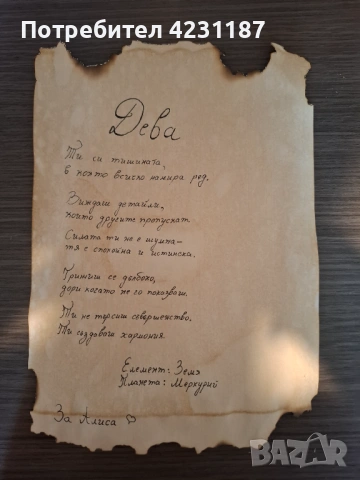 Потребител 4231187
Дева
Ти си тишината,
в която всичко намира ред.
Виждаш детайли,
които другите пропускат.
Силата ти не е шумна-
тя е спокойна и истинска.
Грижиш се дълбоко,
дори когато не го показваш.
Ти не търсиш съвършенство.
Ти създаваш хармония.
Елемент: Земя
Планета: Меркурий
За Алиса ♡
BAZAR